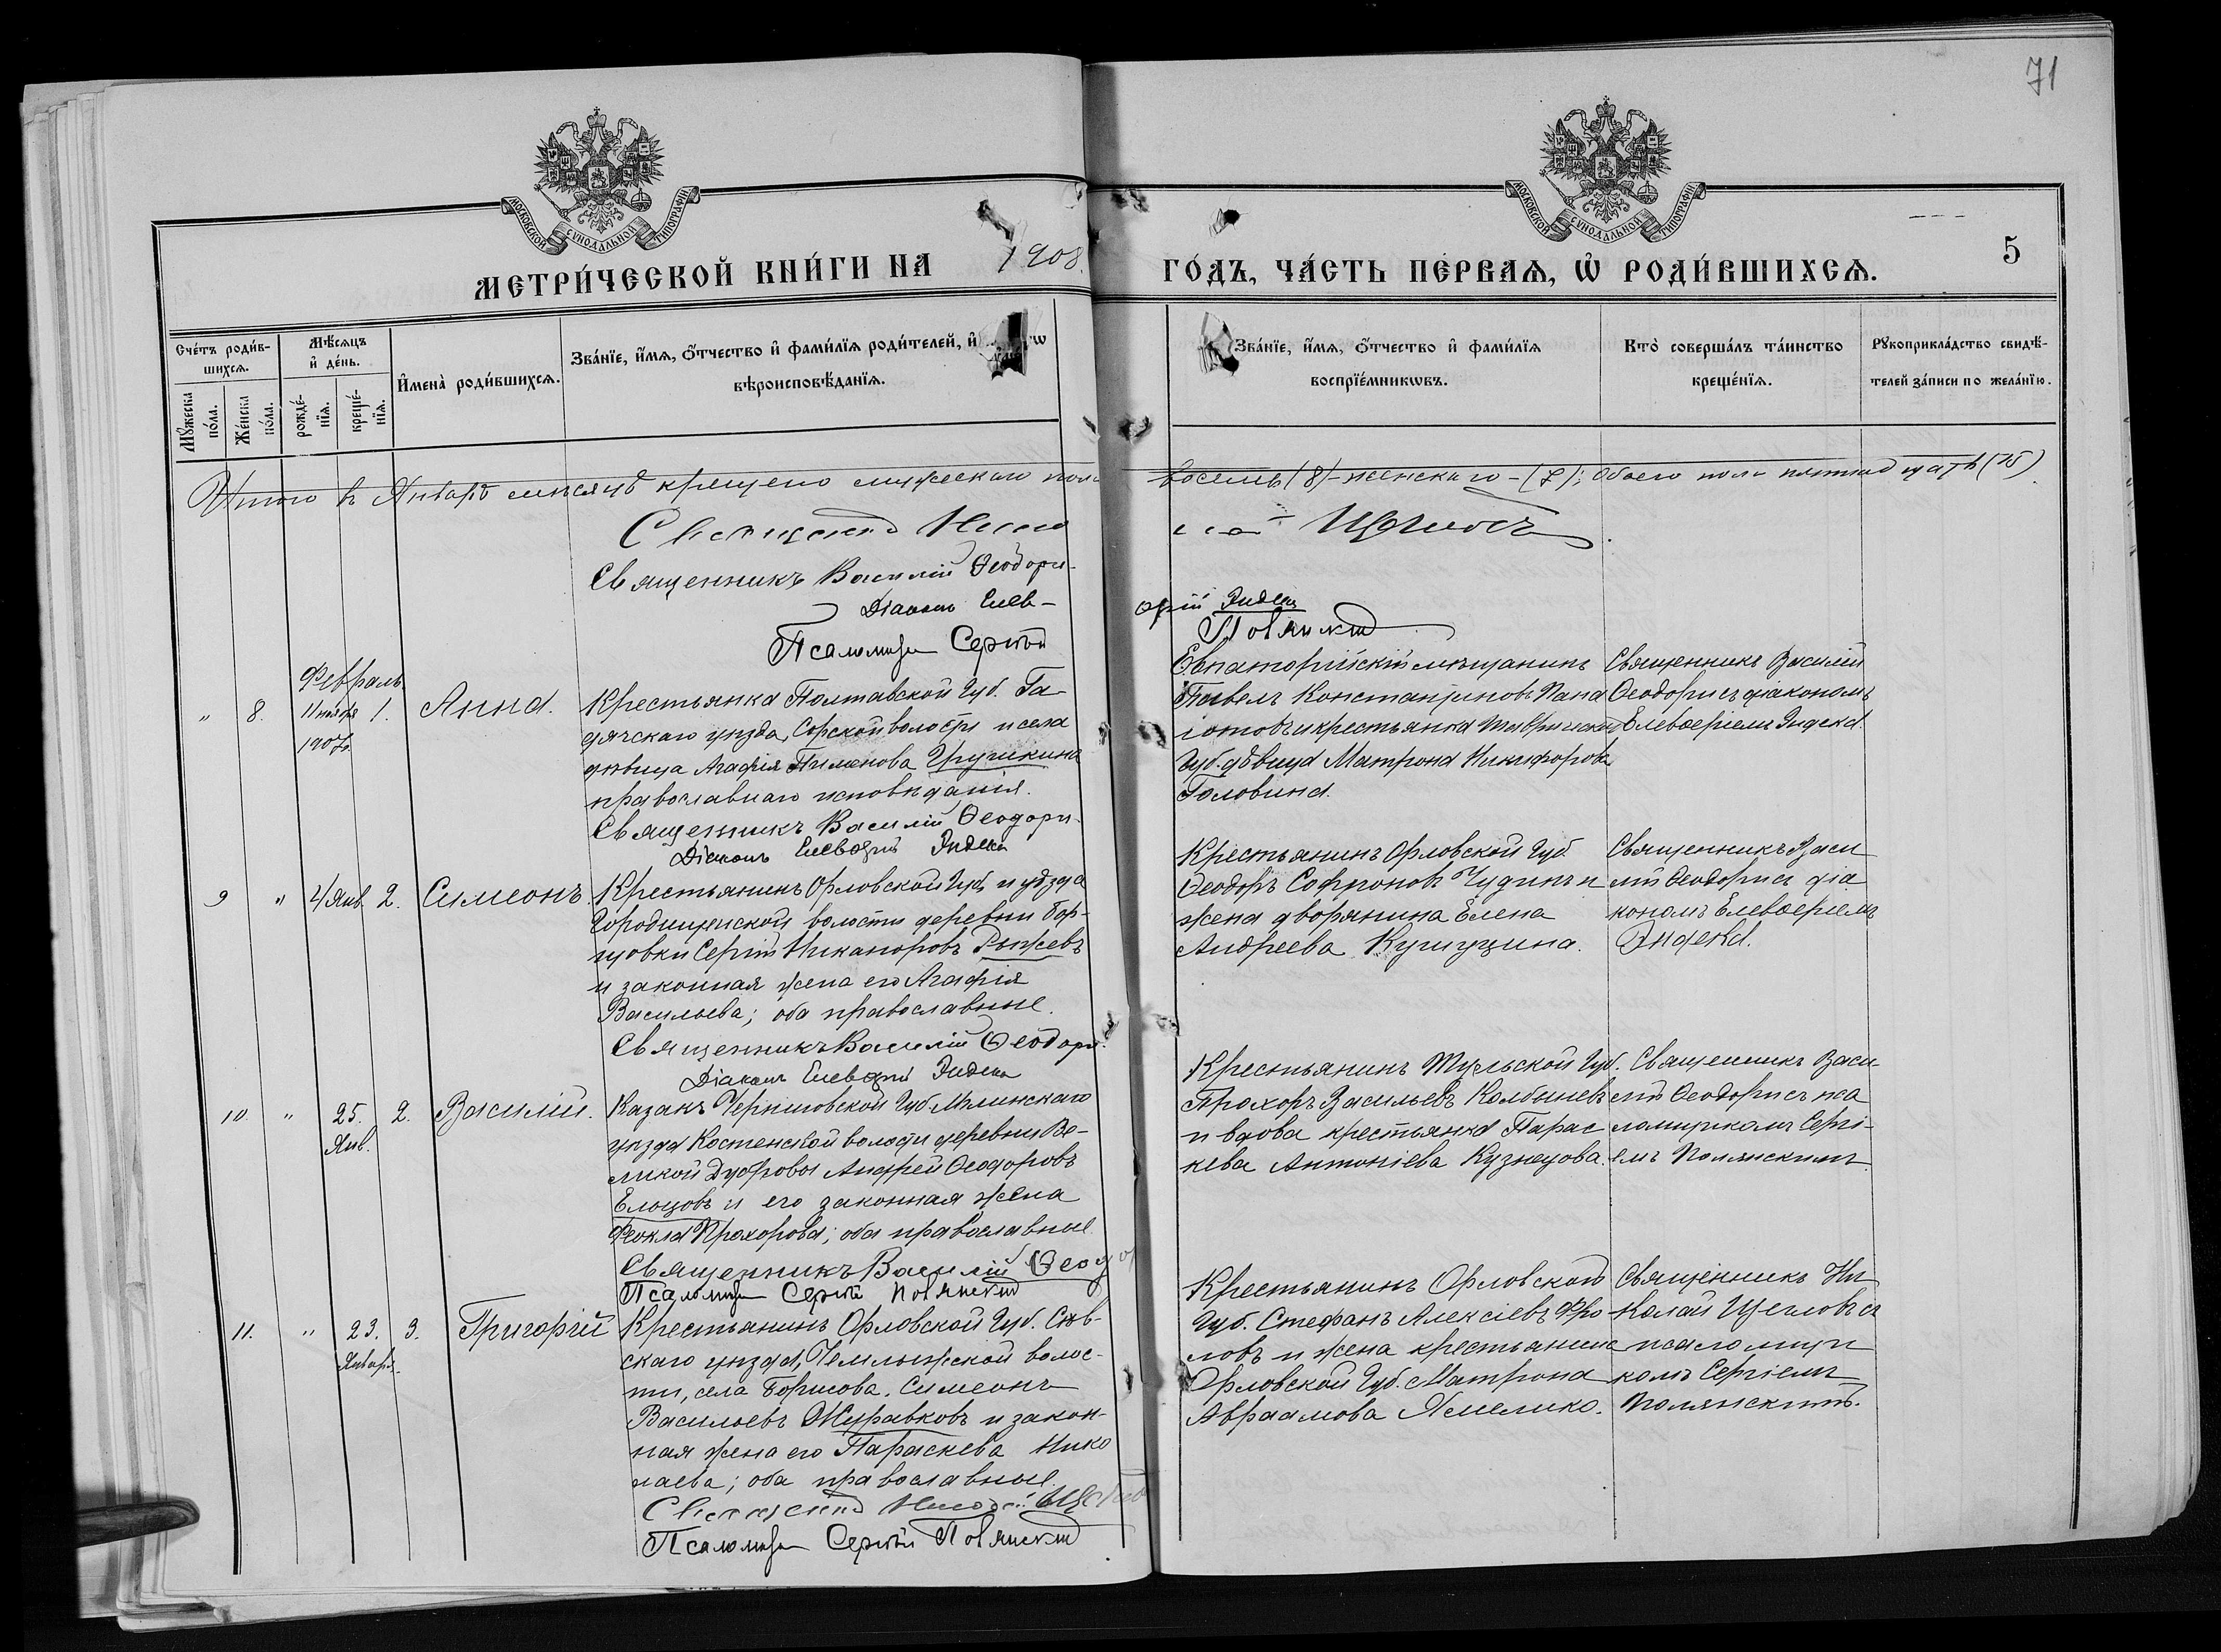 71
МОСКОВСКОЙ СУНОДАЛЬНОЙ ТИПОГРАФІИ
МОСКОВСКОЙ СУНОДАЛЬНОЙ ТИПОГРАФІИ
5
МЕТРИ́ЧЕСКОЙ КНИ́ГИ НА 1908.
ГО́ДЪ, ЧА́СТЬ ПЕ́РВАѦ, Ѡ҆ РОДИ́ВШИХСѦ.
Сче́тъ роди́в-
шихсѧ.
Му́жеска по́ла.
Же́нска по́ла.
Мѣ́сѧцъ и҆ де́нь.
рожде́-
нїѧ.
креще́-
нїѧ.
И҆мена̀ роди́вшихсѧ.
Зва́нїе, и҆́мѧ, ѻ҆́тчество и҆ фами́лїѧ роди́телей, и҆
вѣроисповѣ́данїѧ.
Зва́нїе, и҆́мѧ, ѻ҆́тчество и҆ фами́лїѧ
воспрїе́мникѡвъ.
Кто̀ соверша́лъ та́инство
креще́нїѧ.
Рꙋкоприкла́дство свидѣ́-
телей за́писи по жела́нїю.
Итого въ Январѣ мѣсяцѣ крещено мужескаго пола восемь (8) - женскаго - (7); обоего пола пятнадцать (15)
Священникъ Нико Щегловъ
Священникъ Василій Ѳеодори-
Діаконъ Елев-
ѳерій Индека
Псаломщ Сергій Полянскій
Февраль
" 8. 11 ноября 1907г. 1. Анна.
Крестьянка Полтавской Губ. Га-
дячскаго уѣзда, Сорской волости и села
дѣвица Агафія Пименова Гручикина
православнаго исповѣданія.
Священникъ Василій Ѳеодори
Діаконъ Елевѳерій Индека
Евпаторійскій мѣщанинъ
Павелъ Константиновъ Пана
іотовъ и крестьянка Таврической
Губ. дѣвица Матрона Никифорова
Головина.
Священникъ Василій
Ѳеодори съ діакономъ
Елевѳеріемъ Индека.
9 " 4 Янв. 2. Симеонъ.
Крестьянинъ Орловской Губ. и уѣзда
Городищенской волости деревни Бор-
щовки Сергій Никаноровъ Рыжевъ
и законная жена его Агафія
Васильева; оба православные.
Священникъ Василій Ѳеодори.
Діаконъ Елевѳерій Индека
Крестьянинъ Орловской Губ.
Ѳеодоръ Софроновъ Чудинъ и
жена дворянина Елена
Андреева Кушицина.
Священникъ Васи
лій Ѳеодори съ діа
кономъ Елевѳеріемъ
Индека.
10. " 25. Янв. 2. Василій.
Казакъ Черниговской Губ. Мглинскаго
уѣзда Костенской волости деревни Ве-
ликой Дубровы Андрей Ѳеодоровъ
Ельцовъ и его законная жена
Ѳекла Прохорова; оба православные
Священникъ Василій Ѳеодо
Псаломщ Сергій Полянскій
Крестьянинъ Тульской Губ.
Прохоръ Васильевъ Колбыневъ
и вдова крестьянка Парас
кева Антоніева Кузнецова.
Священникъ Васи-
лій Ѳеодори съ пса
ломщикомъ Сергі-
емъ Полянскимъ.
11. " 23. Января. 3. Григорій
Крестьянинъ Орловской Губ. Сѣв-
скаго уѣзда, Чемлыжской волос-
ти, села Борисова. Симеонъ
Васильевъ Журавковъ и закон-
ная жена его Параскева Нико
лаева; оба православные
Священникъ Николай Щеглов
Псаломщ Сергій Полянскій
Крестьянинъ Орловской
Губ. Стефанъ Алексіевъ Фро
ловъ и жена крестьянина
Орловской Губ. Матрона
Авраамова Ямелико.
Священникъ Ни
колай Щегловъ съ
псаломщи
комъ Сергіемъ
Полянскимъ.